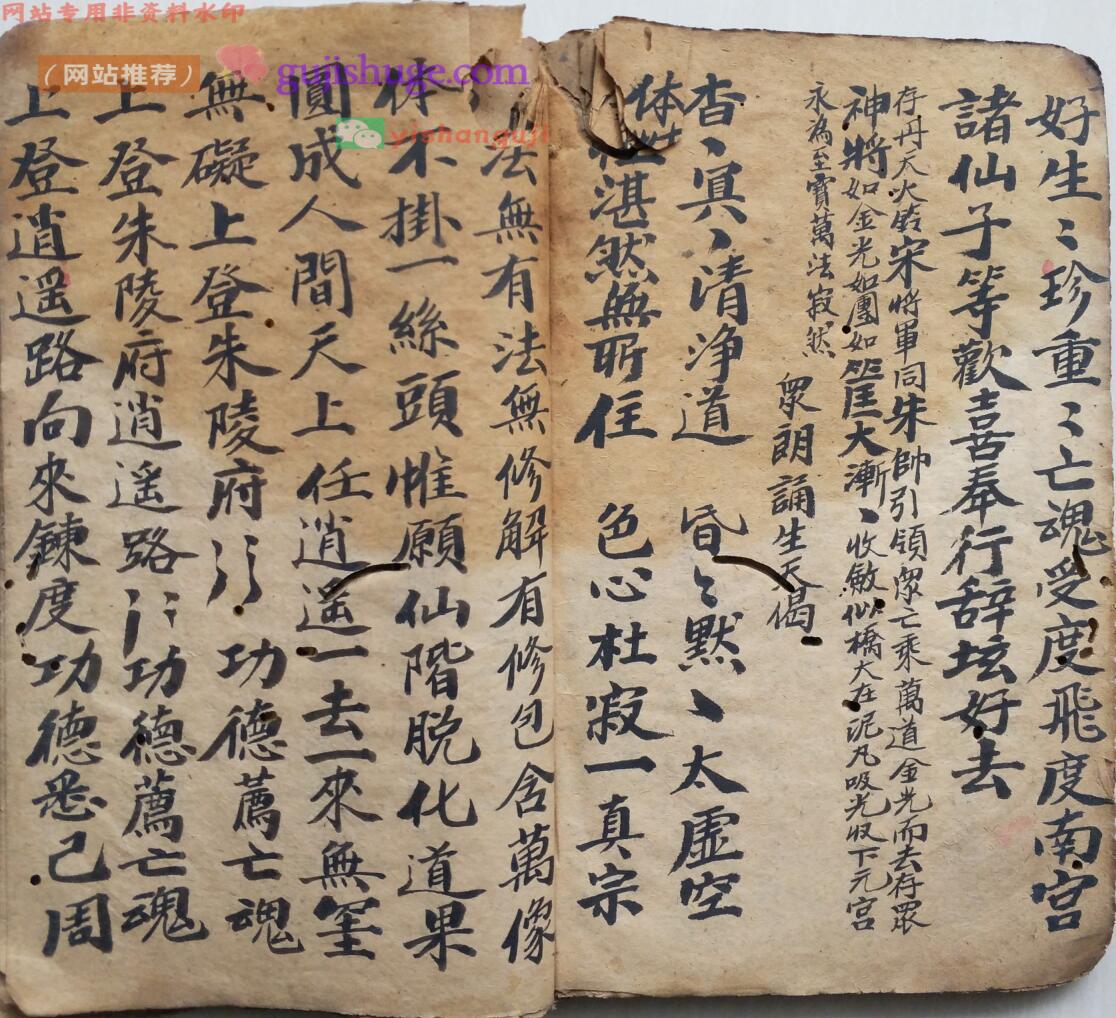 网站专用非资料水印
（网站推荐）
gujishuge.com
yishanguji
好生〻珍重〻亡魂受度飛度南宮
諸仙子等歡喜奉行辞坛好去
存丹天火鈴宋將軍同朱帥引領眾亡乘萬道金光而去存眾
神將如金光如團如筐大漸〻收斂似橋大在泥凡吸光收下元宮
永為至寶萬法寂然
眾朗誦生天偈
杳〻冥〻清净道 昏〻默〻太虛空
体性湛然無所住 色心杜寂一真宗
法無有法無修解有修包含萬像
体不掛一絲頭惟願仙階脱化道果
圓成人間天上任逍遥一去一來無罣
無礙上登朱陵府〻〻〻功德薦亡魂
上登朱陵府逍遥路〻〻〻功德薦亡魂
上登逍遥路向來鍊度功德悉己周